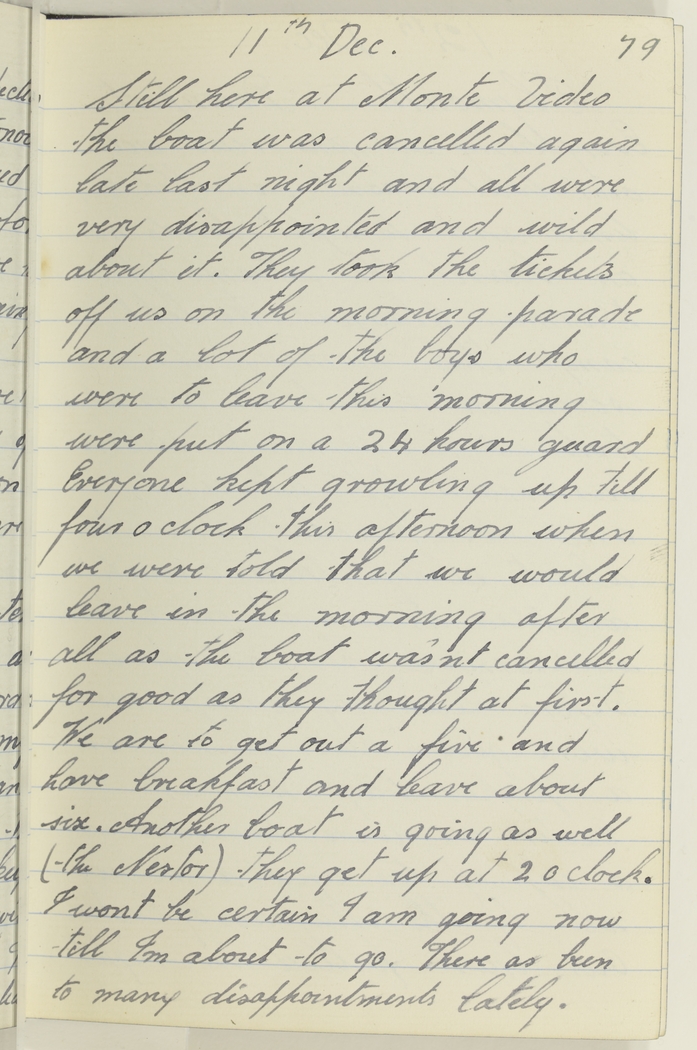 11th Dec. 79
Still here at Monte Video
the boat was cancelled again
late last night and all were
very disappointed and wild
about it. They took the tickets
off us on the morning parade
and a lot of the boys who
were to leave this morning
were put on a 24 hours guard
Everyone kept growling up till
four o clock this afternoon when
we were told that we would
leave in the morning after
all as the boat wasnt cancelled
for good as they thought at first.
We are to get out a five and
have breakfast and leave about
six. Another boat is going as well
(the Nestor) they get up at 2 o clock.
I wont be certain I am going now
till Im about to go. There as been
to many disappointments lately.